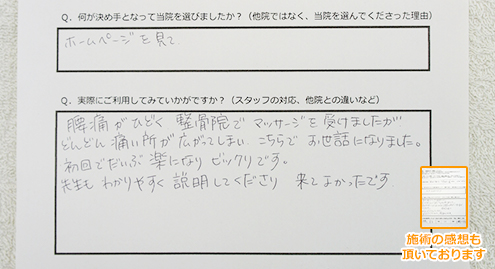 Q．何が決め手となって当院を選びましたか？（他院ではなく、当院を選んでくださった理由）
ホームページを見て.
Q．実際にご利用してみていかがですか？（スタッフの対応、他院との違いなど）
腰痛がひどく 整骨院でマッサージを受けましたが
どんどん痛い所が広がってしまい こちらでお世話になりました。
初回でだいぶ楽になり ビックリです。
先生も わかりやすく説明してくださり 来てよかったです
施術の感想も
頂いております